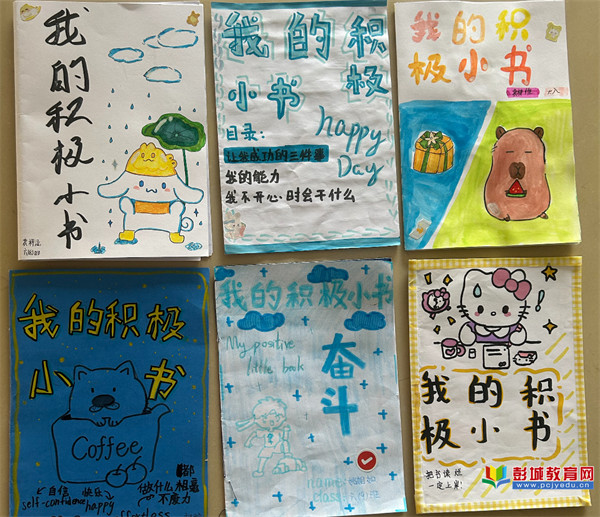 我的积极小书
我的积极
小书
目录:
happy
Day
让我成功的三件事
我的能力
我不开心时会干什么
我的积
极小书
我的积极
小书
Coffee
自信 快乐
self-confidence happy
做什么相素
不魔力
我的积极小书
My positive
little book
奋斗
name:
class:
我的积
极小书
把书读烂
一定上岸!
彭城教育网
www.pcjyedu.cn